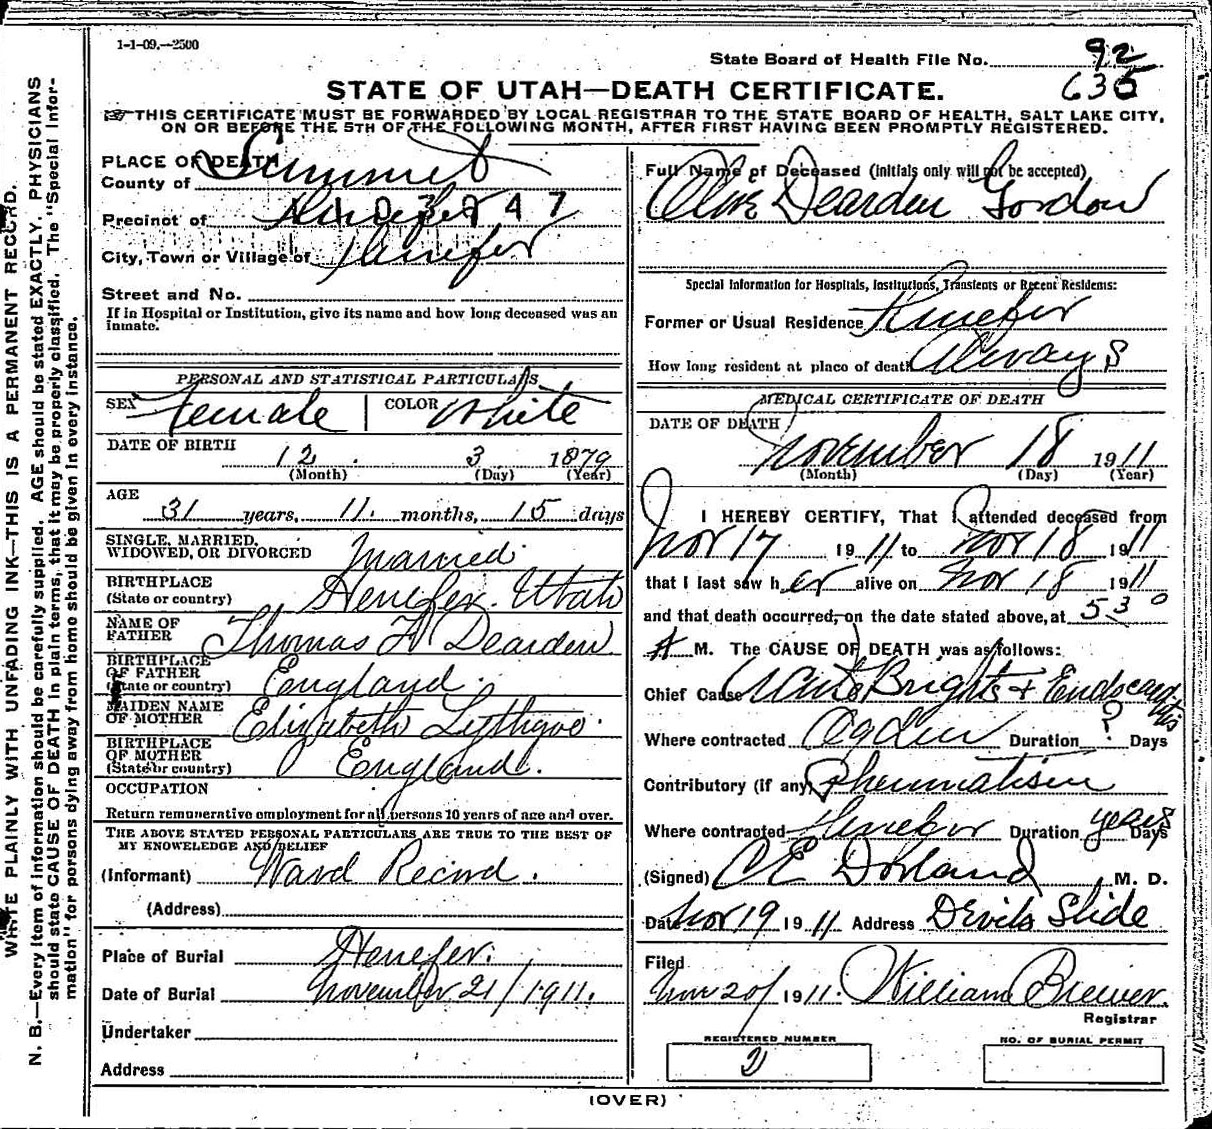 1-1-09.—2500
State Board of Health File No. 92
635
STATE OF UTAH—DEATH CERTIFICATE.
THIS CERTIFICATE MUST BE FORWARDED BY LOCAL REGISTRAR TO THE STATE BOARD OF HEALTH, SALT LAKE CITY,
ON OR BEFORE THE 5TH OF THE FOLLOWING MONTH, AFTER FIRST HAVING BEEN PROMPTLY REGISTERED.
WRITE PLAINLY WITH UNFADING INK—THIS IS A PERMANENT RECORD.
N. B.—Every item of information should be carefully supplied. AGE should be stated EXACTLY. PHYSICIANS
should state CAUSE OF DEATH in plain terms, that it may be properly classified. The "Special Infor-
mation" for persons dying away from home should be given in every instance.
PLACE OF DEATH
County of Summit
Precinct of Henefer
City, Town or Village of Henefer
Street and No.
If in Hospital or Institution, give its name and how long deceased was an
inmate.
PERSONAL AND STATISTICAL PARTICULARS
SEX Female COLOR White
DATE OF BIRTH
12 3 1879
(Month) (Day) (Year)
AGE
31 years, 11. months, 15 days
SINGLE, MARRIED,
WIDOWED, OR DIVORCED Married
BIRTHPLACE
(State or country) Henefer. Utah
NAME OF
FATHER Thomas H Dearden
BIRTHPLACE
OF FATHER
(State or country) England.
MAIDEN NAME
OF MOTHER Elizabeth Lythgoe.
BIRTHPLACE
OF MOTHER
(State or country) England.
OCCUPATION
Return remunerative employment for all persons 10 years of age and over.
THE ABOVE STATED PERSONAL PARTICULARS ARE TRUE TO THE BEST OF
MY KNOWELEDGE AND BELIEF
(Informant) Ward Record.
(Address)
Place of Burial Henefer.
Date of Burial November 21/1911.
Undertaker
Address
Full Name of Deceased (initials only will not be accepted)
Olive Dearden Gordon
Special Information for Hospitals, Institutions, Transients or Recent Residents:
Former or Usual Residence Henefer
How long resident at place of death Always
MEDICAL CERTIFICATE OF DEATH
DATE OF DEATH
November 18 1911
(Month) (Day) (Year)
I HEREBY CERTIFY, That I attended deceased from
Nov 17 1911 to Nov 18 1911
that I last saw her alive on Nov 18 1911
and that death occurred, on the date stated above, at 530
A M. The CAUSE OF DEATH was as follows:
Chief Cause Acute Brights + Endocarditis
Where contracted Ogden Duration ? Days
Contributory (if any) Rheumatism
Where contracted Henefer Duration years Days
(Signed) C E Dorland, M. D.
Date Nov 19 1911 Address Devils Slide
Filed
Nov 20/1911. William Brewer.
Registrar
REGISTERED NUMBER
NO. OF BURIAL PERMIT
(OVER)